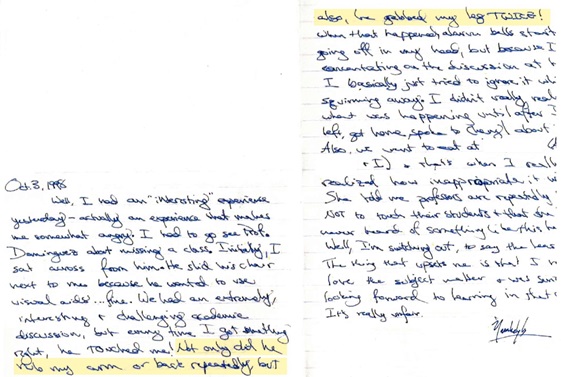 Oct. 3, 1995
Well, I had an "interesting" experience
yesterday - actually an experience that makes
me somewhat angry. I had to go see Prof.
Dominguez about missing a class. Initially, I
sat across from him. He slid his chair
next to me because he wanted to use
visual aids... fine. We had an extremely
interesting & challenging academic
discussion, but every time I got something
right, he TOUCHED me! Not only did he
rub my arm or back repeatedly, but
also, he grabbed my leg TWICE!
When that happened, alarm bells start
going off in my head, but because I
concentrating on the discussion at
I basically just tried to ignore it
squirming away. I didn't really
what was happening until after I
left, got home, spoke to Cheryl about
Also, we went to eat at
& I) & that's when I really
realized how inappropriate it
She told me professors are repeatedly
Not to touch their students & that she
never heard of something like this
Well, I'm out, to say the
The thing that upsets me is that I
love the subject matter & was
looking forward to learning in that
It's really unfair.